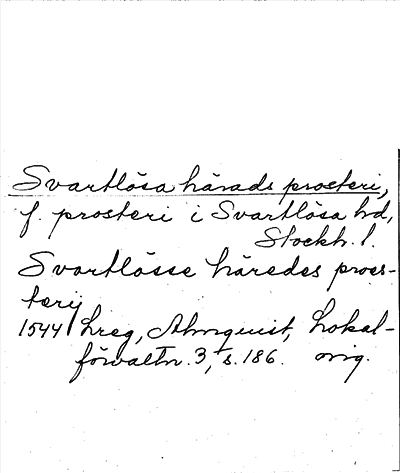 Svartlösa härads prosteri,
f. prosteri i Svartlösa hd,
Stockh. l.
Svartlösse häredes pros-
terij
1544 hreg, Almquist, Lokal-
förvaltn. 3, s. 186. orig.